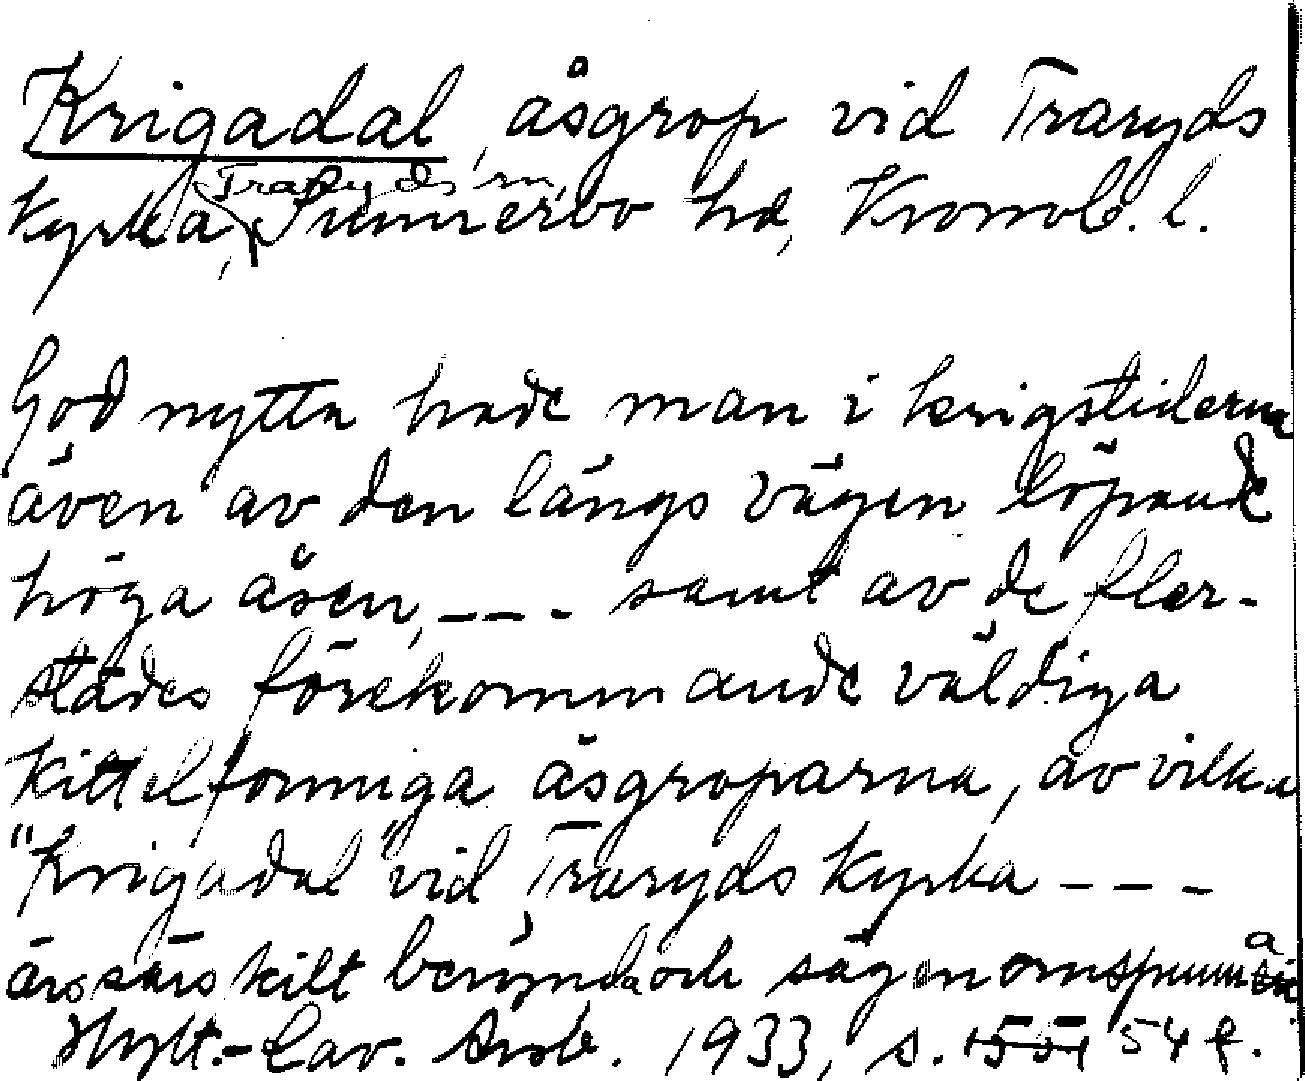 Krigadal, åsgrop vid Traryds
Traryds sn,
kyrka, Sunnerbo hd, Kronob. l.
God nytta hade man i krigstiderna
även av den längs vägen löpande
höga åsen, --- samt av de fler-
städes förekommande väldiga
kittelformiga åsgroparna, av vilka
"Krigadal" vid Traryds kyrka ---
är särskilt berynda och sägenomspunna
Hylt.-Cav. Årsb. 1933, s. 54 f.